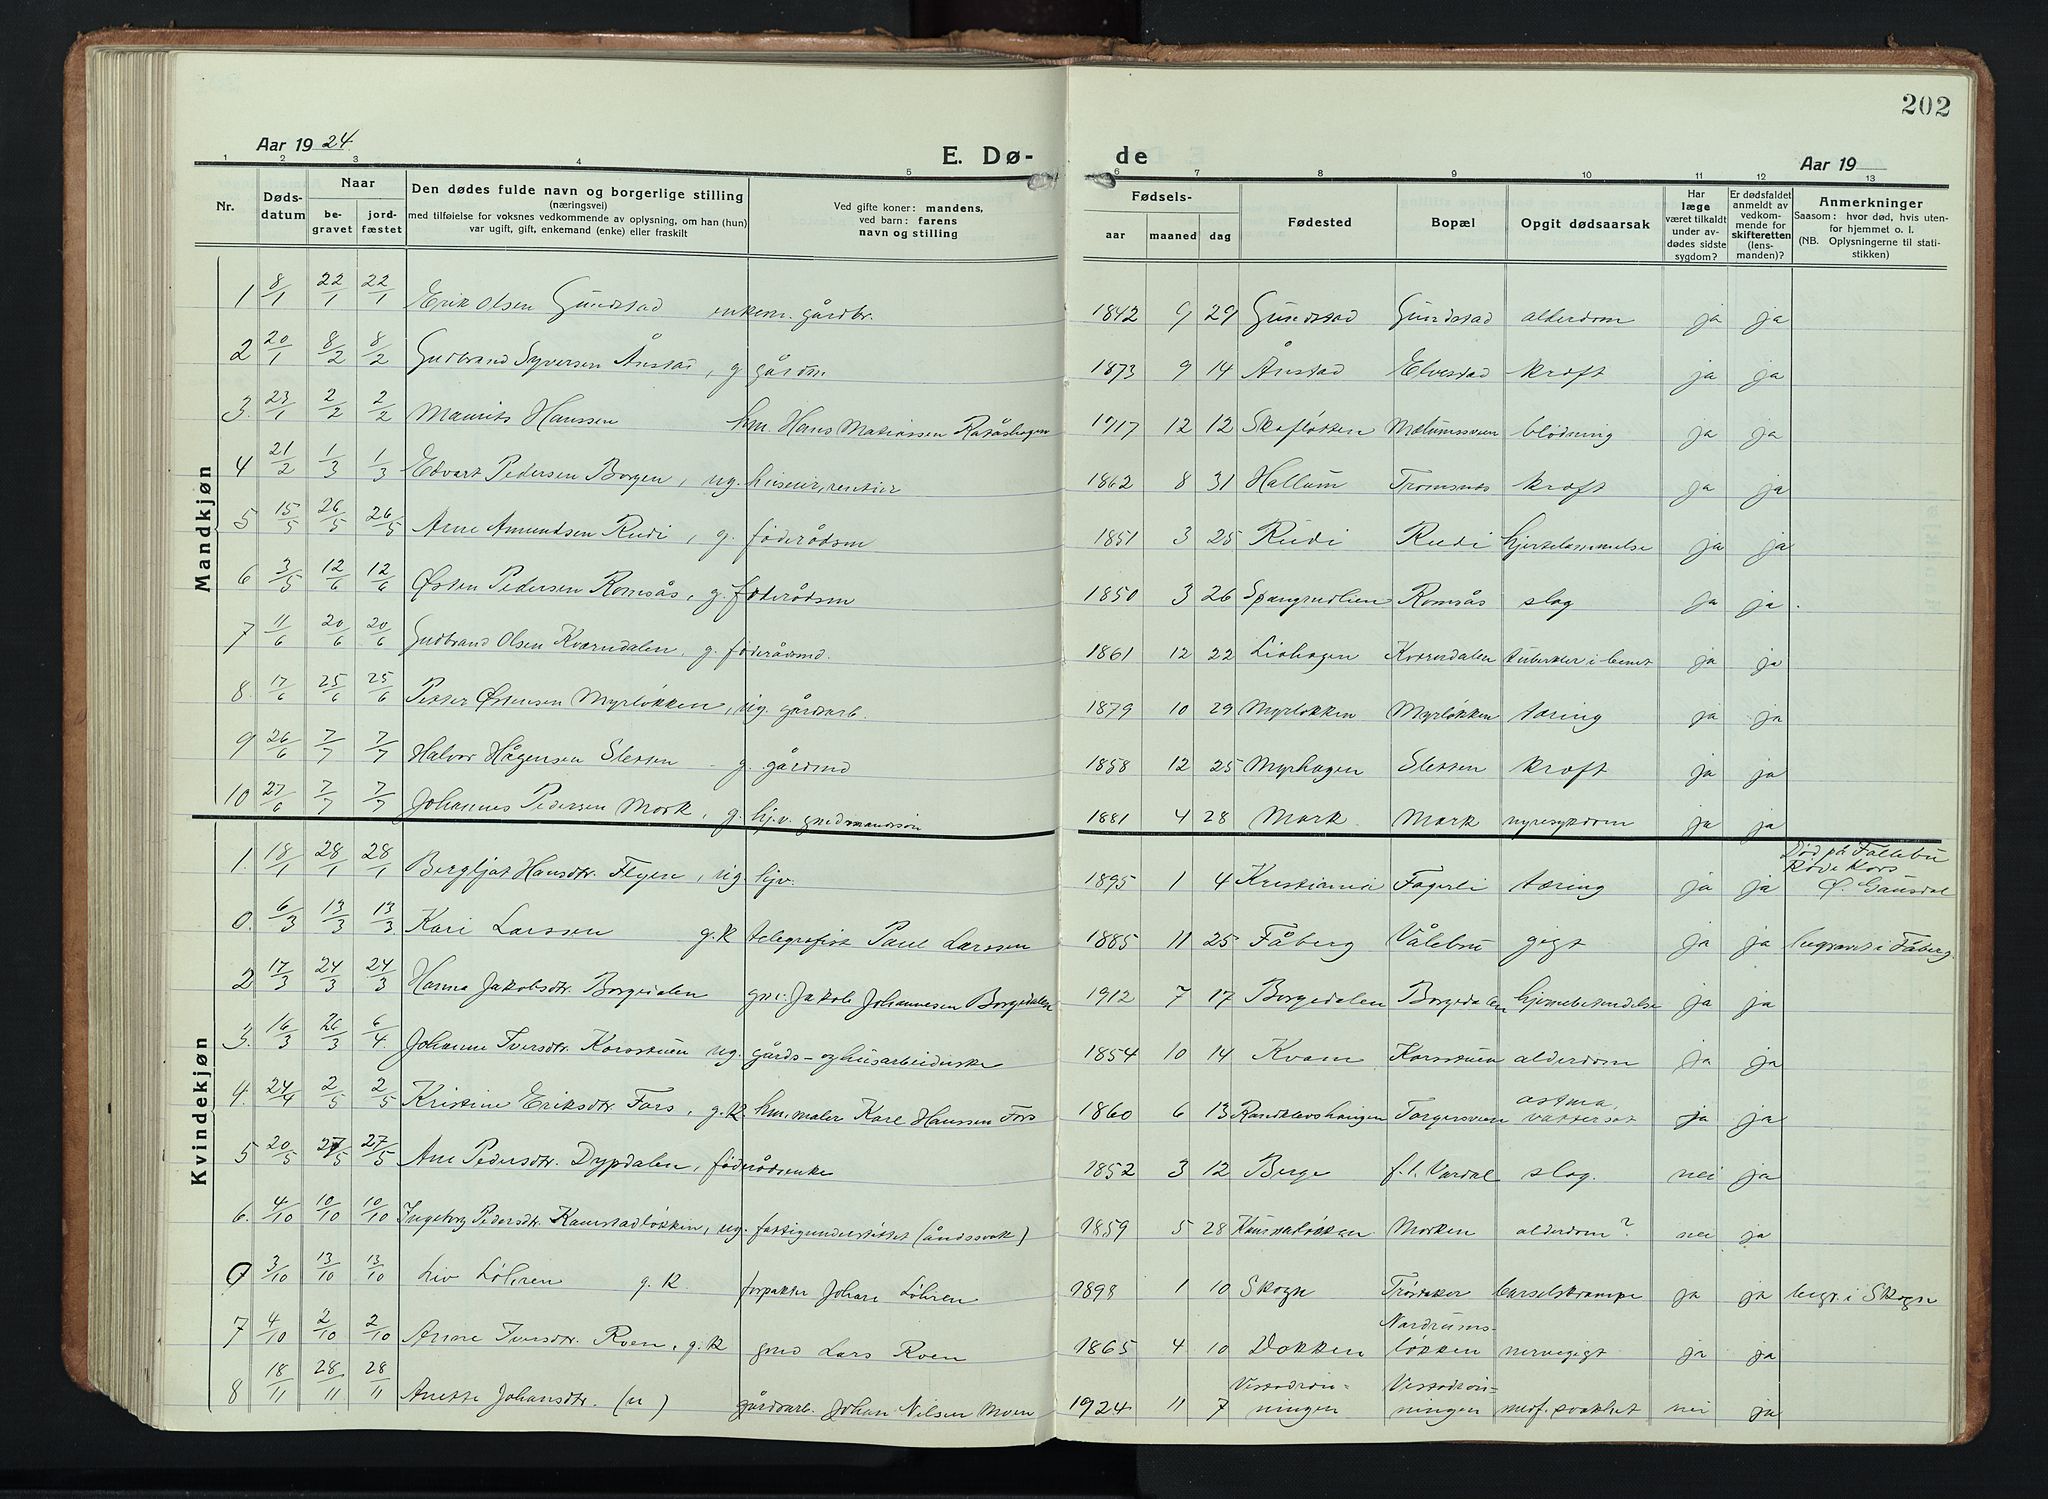 202
Aar 1924
E. Dø-
de
Aar 19
1 2 3 4 5 6 7 8 9 10 11 12 13
Nr.
Døds-
datum
Naar
be-
gravet
jord-
fæstet
Den dødes fulde navn og borgerlige stilling
(næringsvei)
med tilføielse for voksnes vedkommende av oplysning, om han (hun)
var ugift, gift, enkemand (enke) eller fraskilt
Ved gifte koner: mandens,
ved barn: farens
navn og stilling
Fødsels-
aar maaned dag
Fødested
Bopæl
Opgit dødsaarsak
Har
læge
været tilkaldt
under av-
dødes sidste
sygdom?
Er dødsfaldet
anmeldt av
vedkom-
mende for
skifteretten
(lens-
manden)?
Anmerkninger
Saasom: hvor død, hvis uten-
for hjemmet o. l.
(NB. Oplysningerne til stati-
stikken)
Mandkjøn
1 8/1 22/1 22/1 Erik Olsen Gundstad enkem. gårdbr. 1842 9 29 Gundstad Gundstad alderdom ja ja
2 20/1 8/2 8/2 Gudbrand Syversen Ånstad, g. gårdm. 1873 9 14 Ånstad Elvestad kræft ja ja
3. 23/1 2/2 2/2 Maurits Hanssen hm. Hans Matiassen 1917 12 12 blødning ja ja
4 21/2 1/3 1/3 Edvart Pedersen Borgen, ug. huseier, rentier 1862 8 31 Hallum Tromsnes kræft ja ja
5 15/5 26/5 26/5 Arne Amundsen Rudi, g. føderådsm 1851 3 25 Rudi Rudi hjertelammelse ja ja
6 3/5 12/6 12/6 Østen Pedersen Romsås, g. føderådsm 1850 3 26 Spangrudlien Romsås slag ja ja.
7 11/6 20/6 20/6 Gudbrand Olsen Kværndalen, g. føderådsmd. 1861 12 22 Liahagen Kværndalen tuberkler i benet ja ja
8. 17/6 25/6 25/6 Petter Østensen Myrløkken, ug. gårdsarb. 1879 10 29 Myrløkken Myrløkken tæring ja ja
9 26/6 7/7 7/7 Halvor Hågensen Sletten - g. gårdmd 1858 12 25 Myrhagen Sletten kræft ja ja
10 27/6 7/7 7/7 Johannes Pedersen Mork, g. hj.v. gmdsmandssøn 1881 4 28 Mork Mork nyresykdom ja ja
Kvindekjøn
1. 18/1 28/1 28/1 Bergljot Hansdtr. Flyen, ug. hjv. 1895 1 4 Kristiania Fagerli tæring ja ja Død på Follebu
Røde Kors
Ø. Gausdal
0. 6/3 13/3 13/3 Kari Larssen g.k. telegrafist Paul Larssen 1885 11 25 Fåberg Vålebru gigt ja ja begravet i Fåberg.
2 17/3 24/3 24/3 Hanna Jakobsdtr. Borgedalen gm. Jakob Johannesen Borgedalen 1912 7 17 Borgedalen Borgedalen hjernebetændelse ja ja
3. 16/3 26/3 6/4 Johanne Iversdtr. Korsstuen ug. gårds- og husarbeiderske 1854 10 14 Kvam Korsstuen alderdom ja ja
4. 24/4 2/5 2/5 Kristine Eriksdtr. Fors, g.k. hm. maler Karl Hanssen Fors 1860 6 13 astma
vattersot ja ja
5 20/5 27/5 27/5 Ane Pedersdtr. Dypdalen, føderådsenke 1852 3 12 Berge f. t. Vardal slag. nei ja
6. 4/10 10/10 10/10 Ingeborg Pedersdtr. Kamstadløkken, ug. fattigunderstøttet (åndssvak) 1859 5 28 Morken alderdom? nei ja
0 3/10 13/10 13/10 Liv Løhren g. k. forpakter Johan Løhren 1898 1 10 Skogn Trøstaker barselskrampe ja ja begr. i Skogn
7 4/10 2/10 2/10 Anne Iversdtr. Roen, g.k. gmd Lars Roen 1865 4 10 Dokken Nordrums-
løkken nervegigt ja ja
8 18/11 28/11 28/11 Anette Johansdtr. (u) gårdsarb. Johan Nilsen Moen 1924 11 7 medf. svakhet nei ja